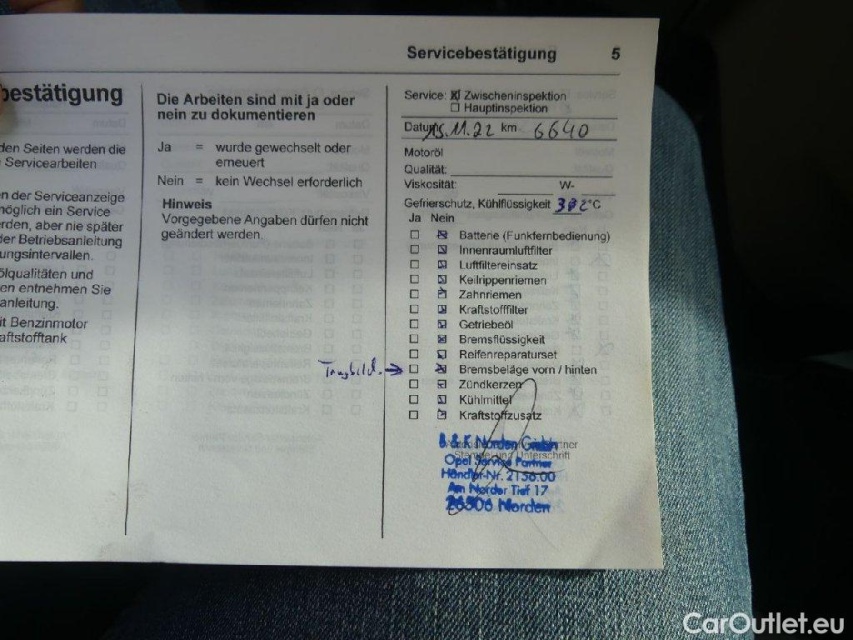 Servicebestätigung 5
bestätigung
den Seiten werden die
Servicearbeiten
n der Serviceanzeige
möglich ein Service
rden, aber nie später
der Betriebsanleitung
ungsintervallen.
ölqualitäten und
en entnehmen Sie
anleitung.
it Benzinmotor
aftstofftank
Die Arbeiten sind mit ja oder
nein zu dokumentieren
Ja = wurde gewechselt oder
erneuert
Nein = kein Wechsel erforderlich
Hinweis
Vorgegebene Angaben dürfen nicht
geändert werden.
Service: ☒ Zwischeninspektion
☐ Hauptinspektion
Datum 15.11.22 km 6640
Motoröl
Qualität:
Viskosität: W-
Gefrierschutz, Kühlflüssigkeit °C
Ja Nein
☐ ☒ Batterie (Funkfernbedienung)
☐ ☒ Innenraumluftfilter
☐ ☒ Luftfiltereinsatz
☐ ☒ Keilrippenriemen
☐ ☒ Zahnriemen
☐ ☒ Kraftstofffilter
☐ ☒ Getriebeöl
☐ ☒ Bremsflüssigkeit
☐ ☒ Reifenreparaturset
Tragbild. → ☐ ☒ Bremsbeläge vorn / hinten
☐ ☒ Zündkerzen
☐ ☒ Kühlmittel
☐ ☒ Kraftstoffzusatz
B & K Norden GmbH
Opel Service Partner
Stempel und Unterschrift
Händler-Nr. 2156.00
Am Norder Tief 17
26506 Norden
CarOutlet.eu